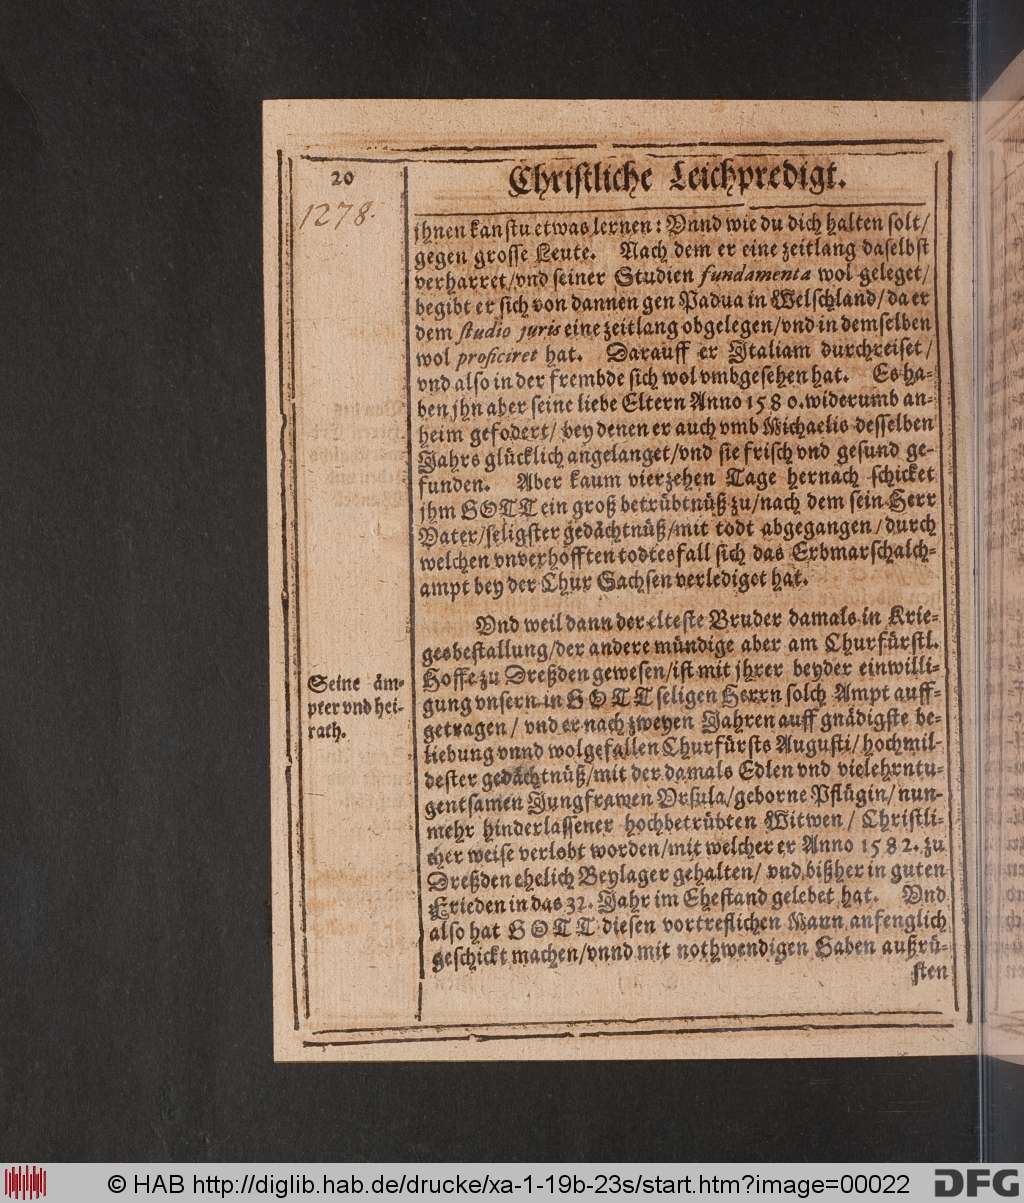 20
Christliche Leichpredigt.
1278.
jhnen kanstu etwas lernen: Vnnd wie du dich halten solt/
gegen grosse Leute. Nach dem er eine zeitlang daselbst
verharret/vnd seiner Studien fundamenta wol geleget/
begibt er sich von dannen gen Padua in Welschland/da er
dem studio juris eine zeitlang obgelegen/vnd in demselben
wol proficiret hat. Darauff er Jtaliam durchreiset/
vnd also in der frembde sich wol vmbgesehen hat. Es ha-
ben jhn aber seine liebe Eltern Anno 1580. widerumb an-
heim gefodert/ bey denen er auch vmb Michaelis desselben
Jahrs glücklich angelanget/vnd sie frisch vnd gesund ge-
funden. Aber kaum vierzehen Tage hernach schicket
jhm GOTT ein groß betrübtnüß zu/nach dem sein Herr
Vater/seligster gedächtnüß/mit todt abgegangen/durch
welchen vnverhofften todtesfall sich das Erbmarschalch-
ampt bey der Chur Sachsen verlediget hat.
Vnd weil dann der elteste Bruder damals in Krie-
gesbestallung/der andere mündige aber am Churfürstl.
Hoffe zu Dreßden gewesen/ist mit jhrer beyder einwilli-
gung vnsern in GOTT seligen Herrn solch Ampt auff-
getragen/ vnd er nach zweyen Jahren auff gnädigste be-
liebung vnnd wolgefallen Churfürsts Augusti/hochmil-
dester gedächtnüß/mit der damals Edlen vnd vielehrntu-
gentsamen Jungfrawen Vrsula/geborne Pflügin/nun-
mehr hinderlassener hochbetrübten Witwen/ Christli-
cher weise verlobt worden/mit welcher er Anno 1582. zu
Dreßden ehelich Beylager gehalten/ vnd bißher in guten
Frieden in das 32. Jahr im Ehestand gelebet hat. Vnd
also hat GOTT diesen vortreflichen Mann anfenglich
geschickt machen/vnnd mit nothwendigen Gaben außrü-
sten
Seine äm-
pter vnd hei-
rath.
© HAB http://diglib.hab.de/drucke/xa-1-19b-23s/start.htm?image=00022
DFG